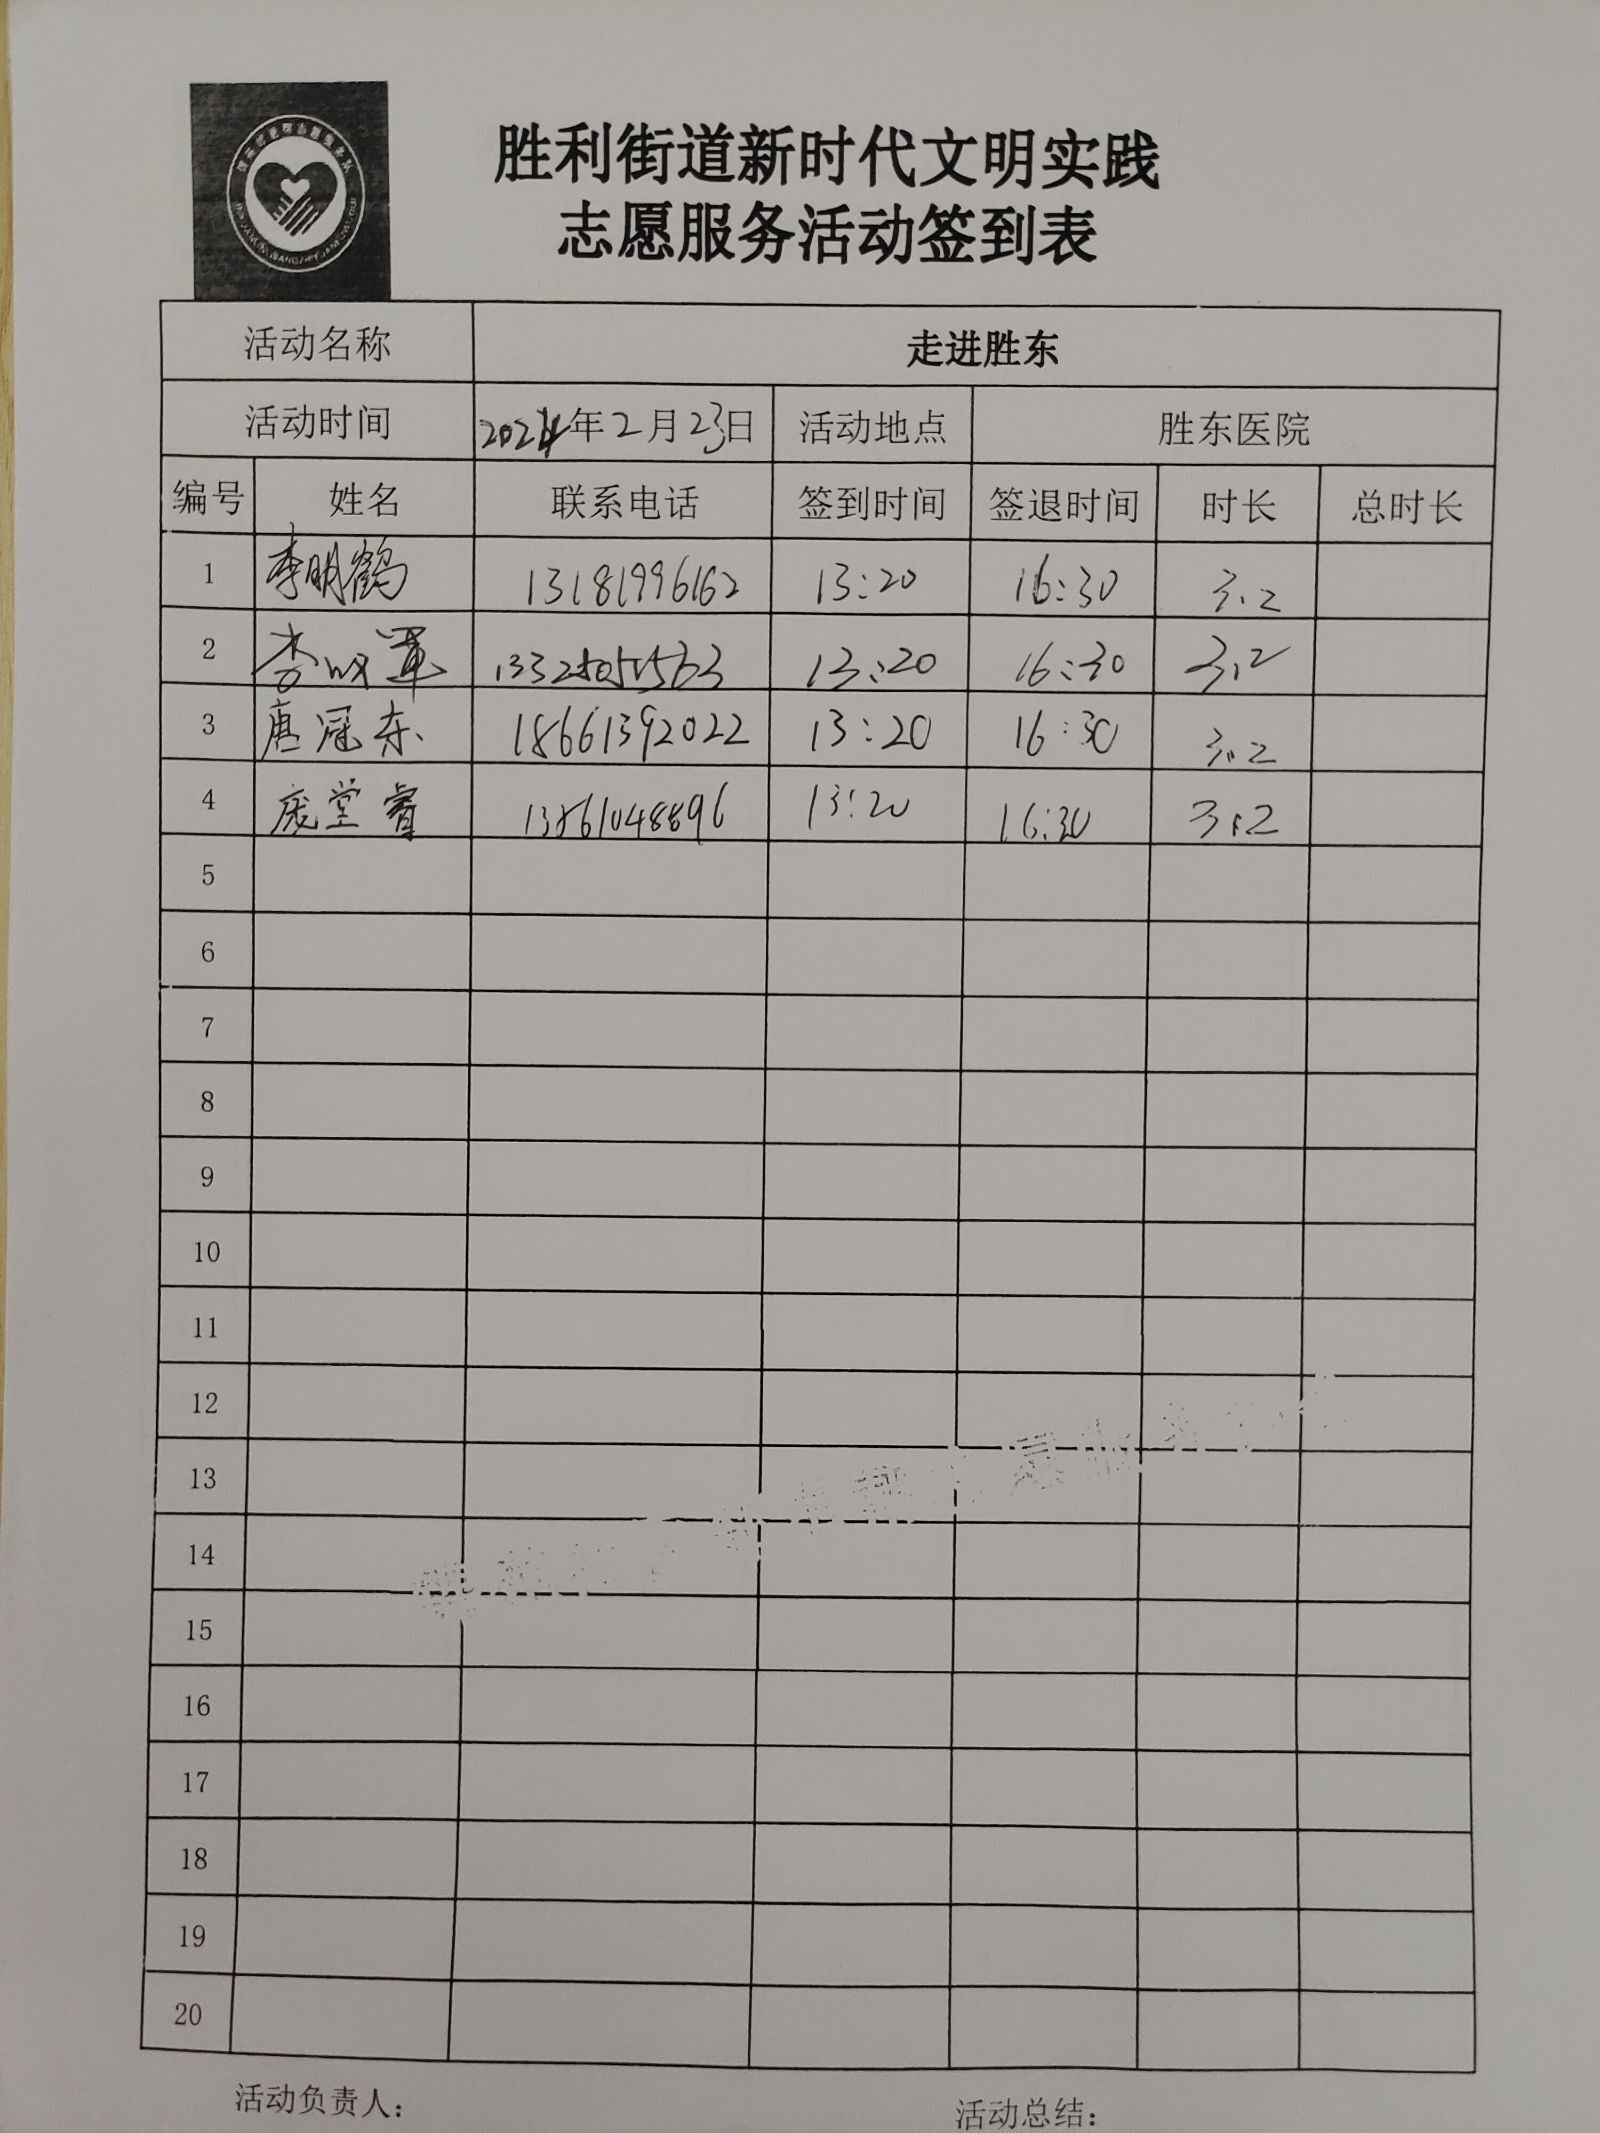 胜利街道新时代文明实践
志愿服务活动签到表
活动名称 走进胜东
活动时间 2024年2月23日 活动地点 胜东医院
编号 姓名 联系电话 签到时间 签退时间 时长 总时长
1 李明鹤 13181996162 13:20 16:30 3.2
2 李 军 13325051563 13:20 16:30 3.2
3 唐冠东 18661392022 13:20 16:30 3.2
4 庞堂睿 13861048896 13:20 16:30 3.2
5
6
7
8
9
10
11
12
13
14
15
16
17
18
19
20
活动负责人： 活动总结：